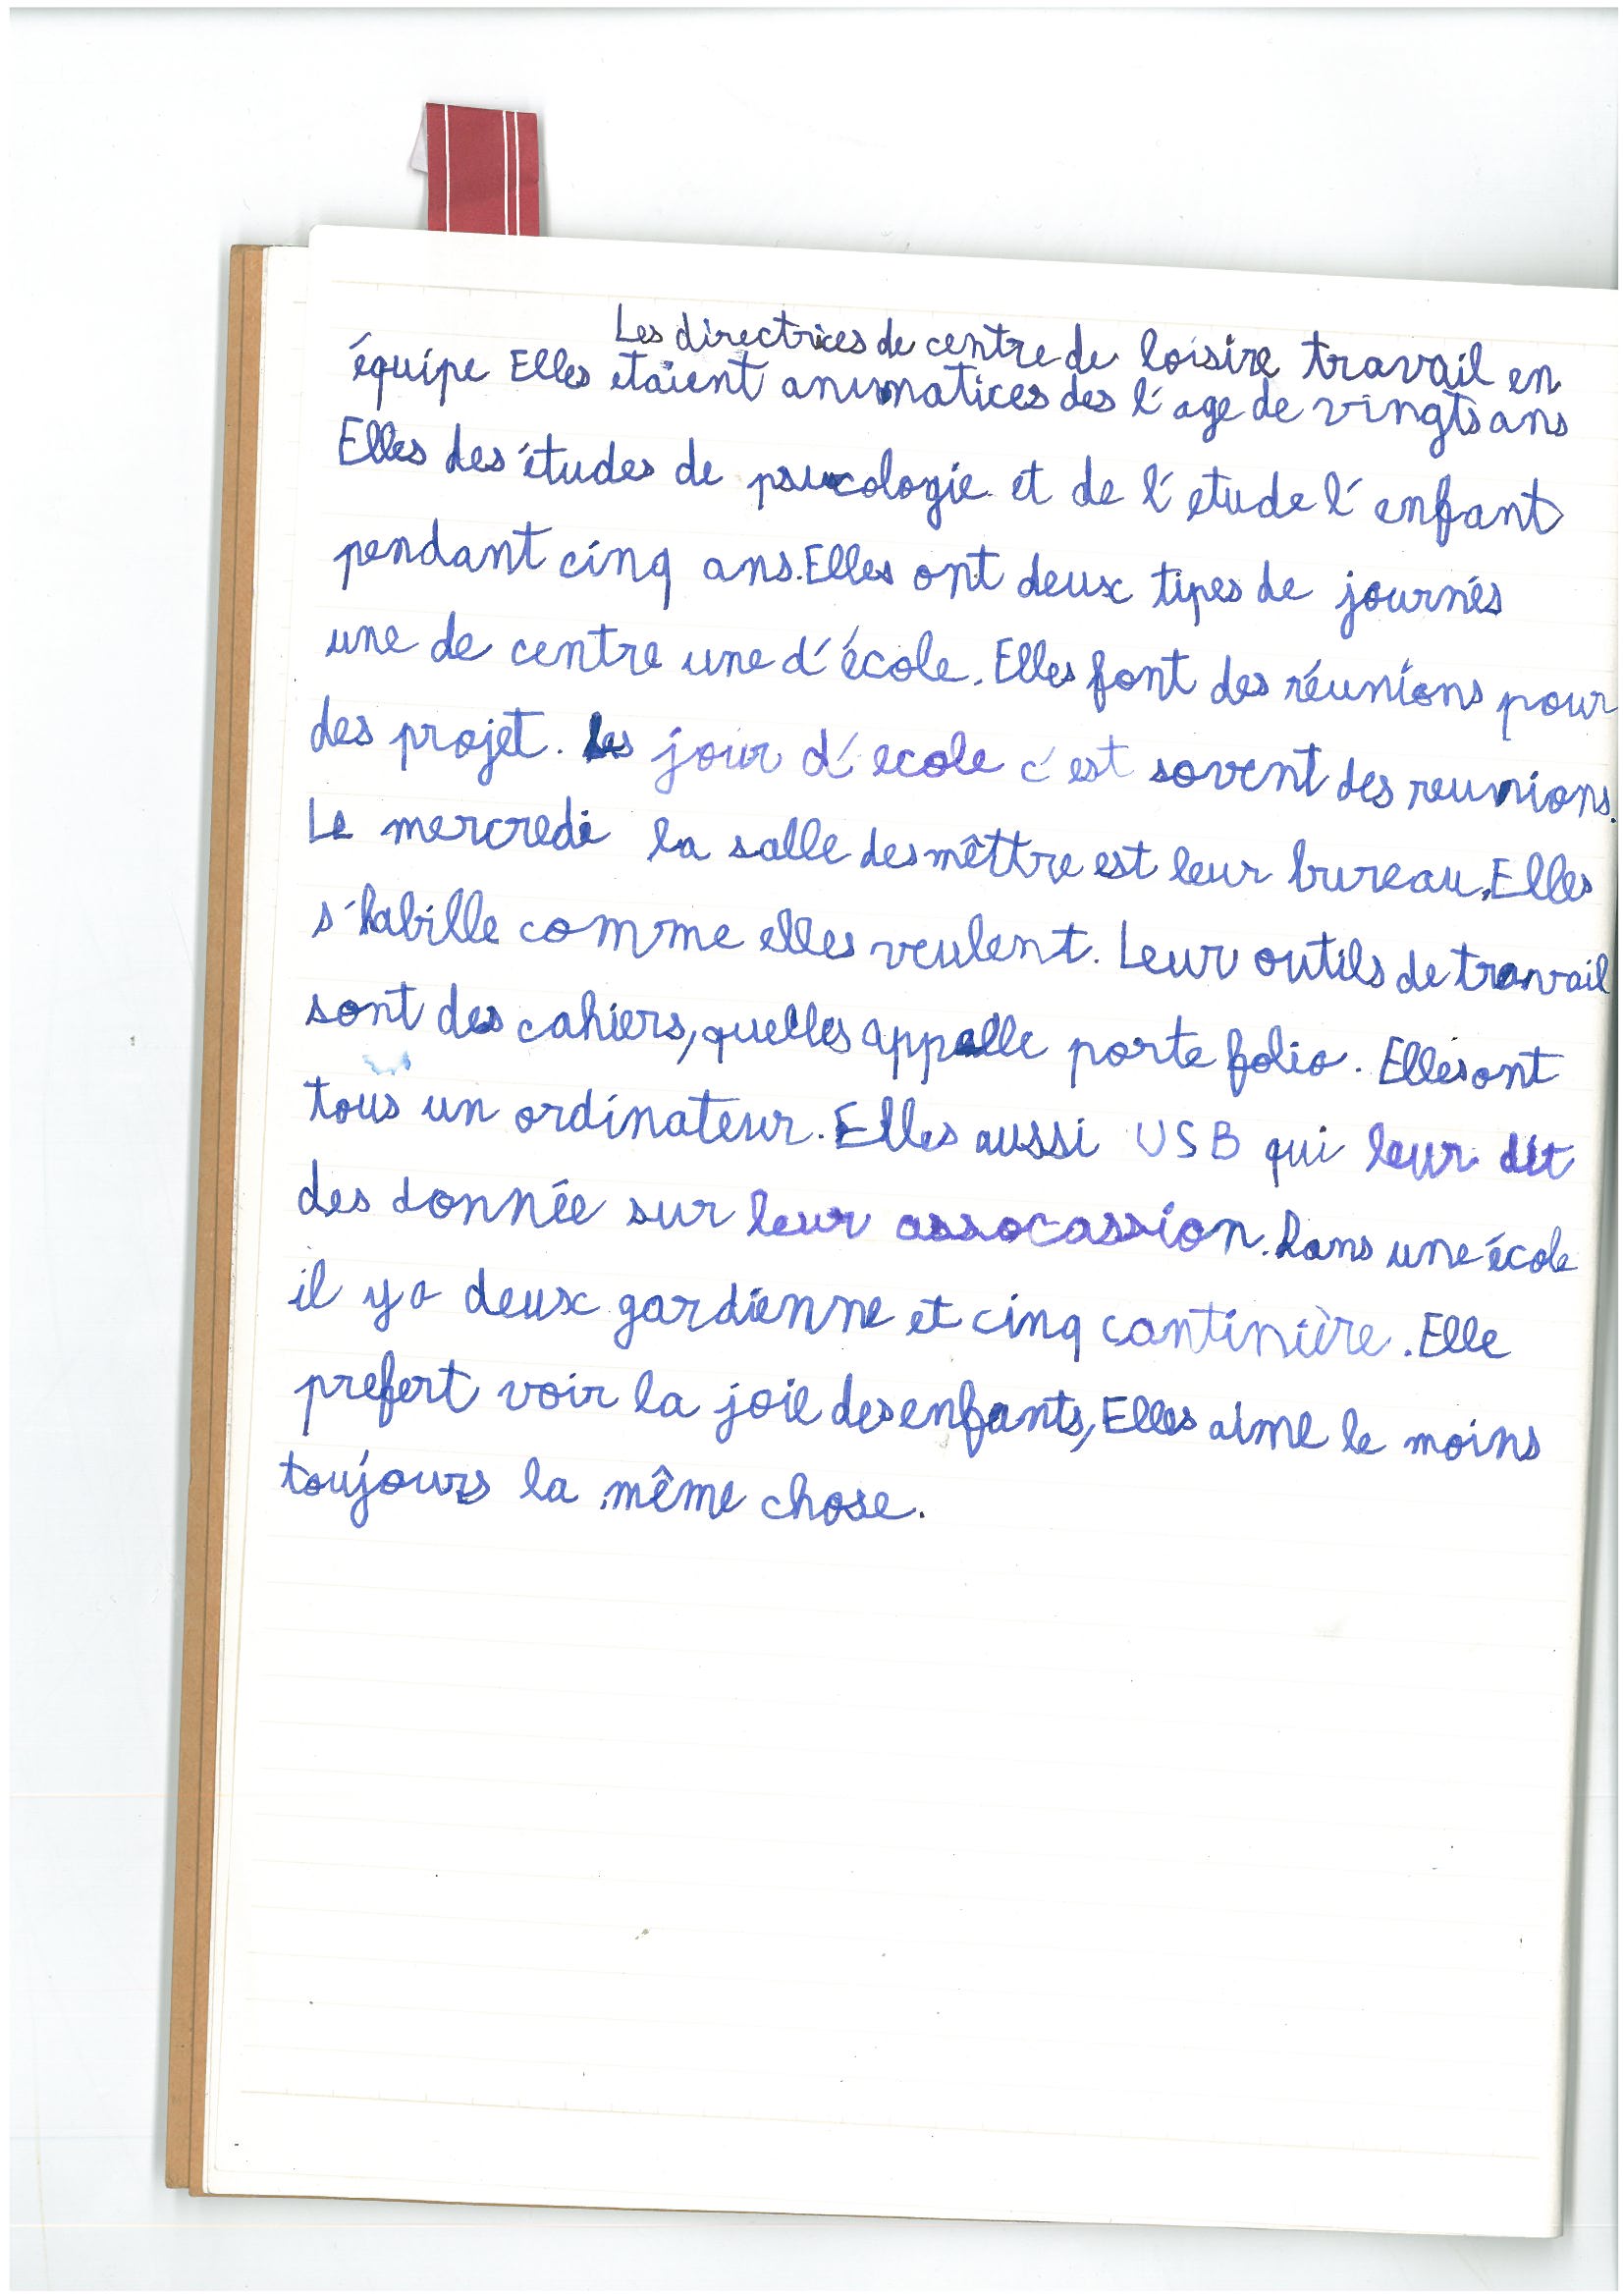 Les directrices de centre de loisire travail en
équipe Elles etaient animatices des l'age de vingts ans
Elles des études de psucologie et de l'etude l'enfant
pendant cinq ans. Elles ont deux tipes de journés
une de centre une d'école. Elles font des réunions pour
des projet. Les jour d'ecole c'est sovent des reunions.
Le mercredi la salle des mêttre est leur bureau. Elles
s'habille comme elles veulent. Leur outils de travail
sont des cahiers, quelles appalle porte folio. Elles ont
tous un ordinateur. Elles aussi USB qui leur dit
des donnée sur leur assocassion. Dans une école
il y a deux gardienne et cinq cantinière. Elle
prefert voir la joie des enfants, Elles aime le moins
toujours la même chose.